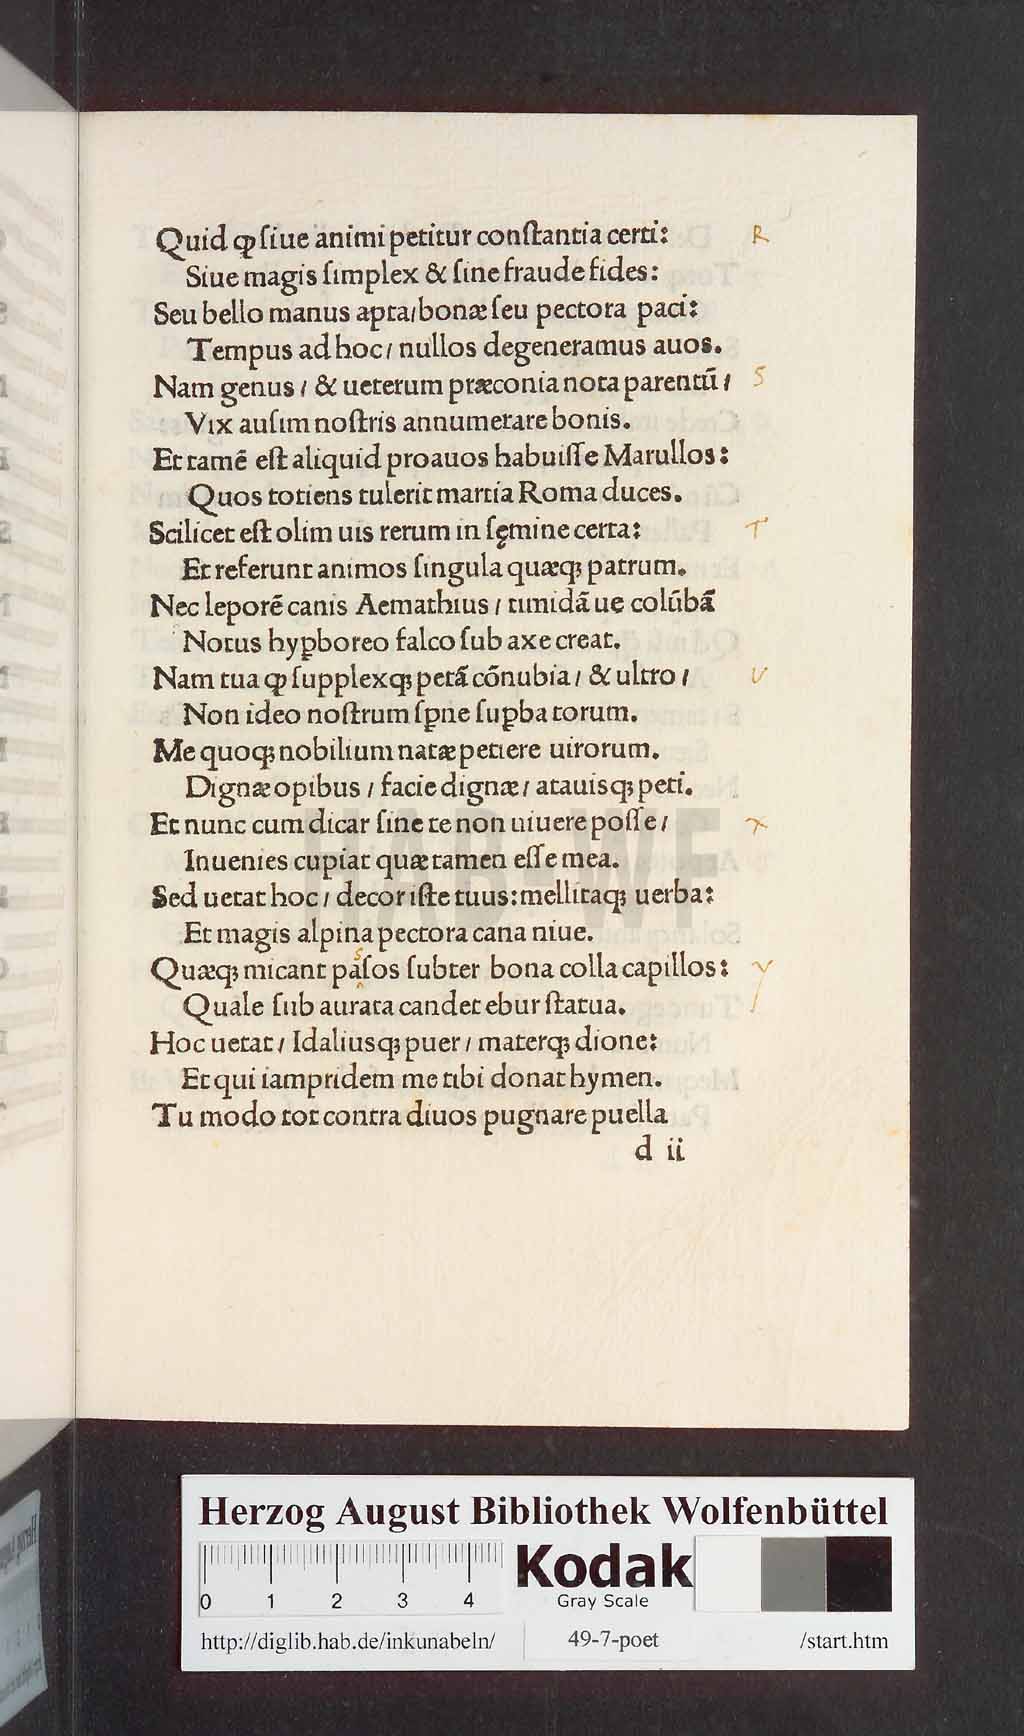 Quid ꝙ ſiue animi petitur conſtantia certi: R
Siue magis ſimplex & ſine fraude fides:
Seu bello manus apta/ bonæ ſeu pectora paci:
Tempus ad hoc/ nullos degeneramus auos.
Nam genus / & ueterum præconia nota parentū / S
Vix auſim noſtris annumerare bonis.
Et tamē eſt aliquid proauos habuiſſe Marullos:
Quos totiens tulerit martia Roma duces.
Scilicet eſt olim uis rerum in ſęmine certa: T
Et referunt animos ſingula quæqꝫ patrum.
Nec leporē canis Aemathius / timidā ue colūbā
Notus hyꝑboreo falco ſub axe creat.
Nam tua ꝙ ſupplexqꝫ petā cōnubia / & ultro / V
Non ideo noſtrum ſꝑne ſuꝑba torum.
Me quoqꝫ nobilium natæ petiere uirorum.
Dignæ opibus / facie dignæ / atauisqꝫ peti.
Et nunc cum dicar ſine te non uiuere poſſe / X
Inuenies cupiat quæ tamen eſſe mea.
Sed uetat hoc / decor iſte tuus: mellitaqꝫ uerba:
Et magis alpina pectora cana niue.
Quæqꝫ micant paſſos ſubter bona colla capillos: Y
Quale ſub aurata candet ebur ſtatua.
Hoc uetat / Idaliusqꝫ puer / materqꝫ dione:
Et qui iampridem me tibi donat hymen.
Tu modo tot contra diuos pugnare puella
d ii
HAB-WF
Herzog August Bibliothek Wolfenbüttel
0 1 2 3 4
Kodak
Gray Scale
http://diglib.hab.de/inkunabeln/ 49-7-poet /start.htm